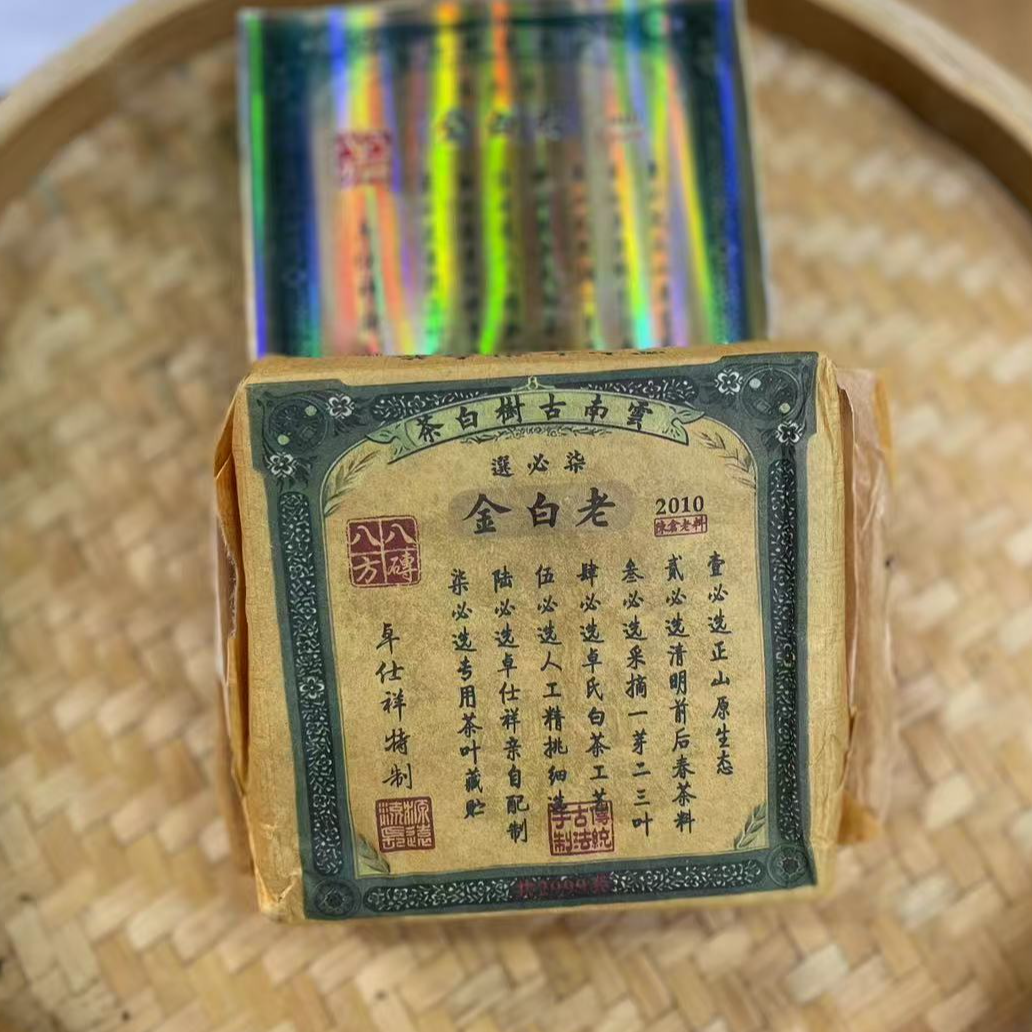 雲南古樹白茶
柒必選
老白金
2010
陳倉老料
八磚
八方
壹必选正山原生态
贰必选清明前后春茶料
叁必选采摘一芽二三叶
肆必选卓氏白茶工艺
伍必选人工精挑细选
陆必选卓仕祥亲自配制
柒必选专用茶叶藏贮
卓仕祥特制
源遠流長
傳統古法手制